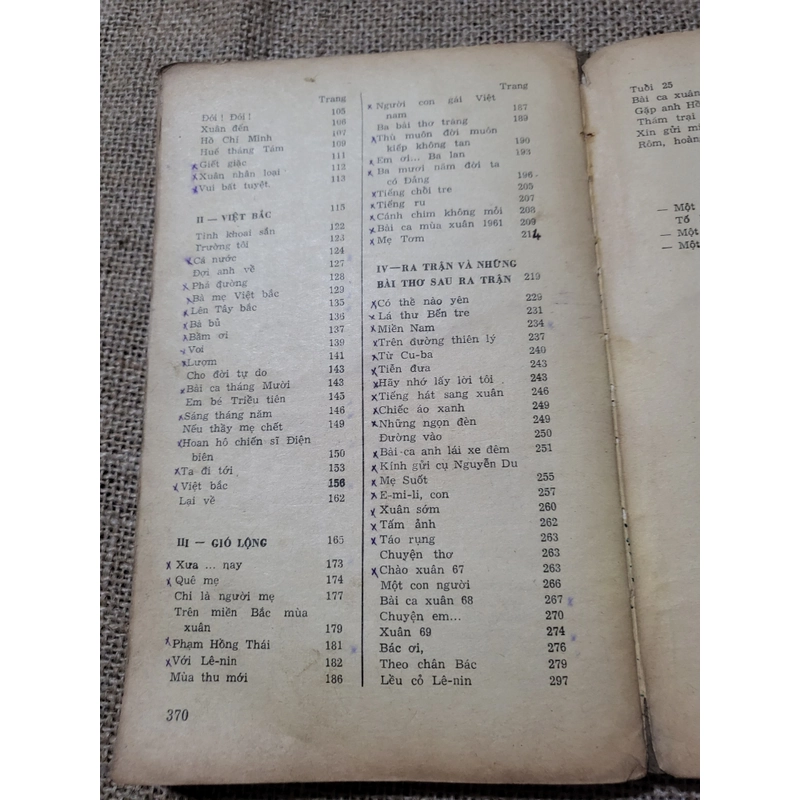 Trang
Đôi ! Đôi ! 105
Xuân đến 106
Hồ Chí Minh 107
Huế tháng Tám 109
Giết giặc 111
Xuân nhân loại 112
Vui bất tuyệt 113
II — VIỆT BẮC 115
Tình khoai sắn 122
Trường tôi 123
Cá nước 124
Đợi anh về 127
Phá đường 128
Bà mẹ Việt bắc 129
Lên Tây bắc 135
Bà bủ 136
Bầm ơi 137
Voi 139
Lượm 141
Cho đời tự do 143
Bài ca tháng Mười 143
Em bé Triều tiên 145
Sáng tháng năm 146
Nếu thầy mẹ chết 149
Hoan hô chiến sĩ Điện
biên 150
Ta đi tới 153
Việt bắc 156
Lại về 162
III — GIÓ LỘNG 165
Xưa ... nay 173
Quê mẹ 174
Chị là người mẹ 177
Trên miền Bắc mùa
xuân 179
Phạm Hồng Thái 181
Với Lê-nin 182
Mùa thu mới 186
370
Trang
Người con gái Việt
nam 187
Ba bài thơ trăng 189
Thù muôn đời muôn
kiếp không tan 190
Em ơi... Ba lan 193
Ba mươi năm đời ta
có Đảng 196
Tiếng chổi tre 205
Tiếng ru 207
Cánh chim không mỏi 208
Bài ca mùa xuân 1961 209
Mẹ Tơm 214
IV — RA TRẬN VÀ NHỮNG
BÀI THƠ SAU RA TRẬN 219
Có thể nào yên 229
Lá thư Bến tre 231
Miền Nam 234
Trên đường thiên lý 237
Từ Cu-ba 240
Tiễn đưa 243
Hãy nhớ lấy lời tôi 243
Tiếng hát sang xuân 246
Chiếc áo xanh 249
Những ngọn đèn 249
Đường vào 250
Bài ca anh lái xe đêm 251
Kính gửi cụ Nguyễn Du
Mẹ Suốt 255
E-mi-li, con 257
Xuân sớm 260
Tấm ảnh 262
Táo rụng 263
Chuyện thơ 263
Chào xuân 67 263
Một con người 266
Bài ca xuân 68 267
Chuyện em... 270
Xuân 69 274
Bác ơi, 276
Theo chân Bác 279
Lều cỏ Lê-nin 297
Tuổi 25
Bài ca xuân
Gặp anh Hồ
Thăm trại
Xin gửi mi
Rôm, hoàn
— Một
Tố
— Một
— Một